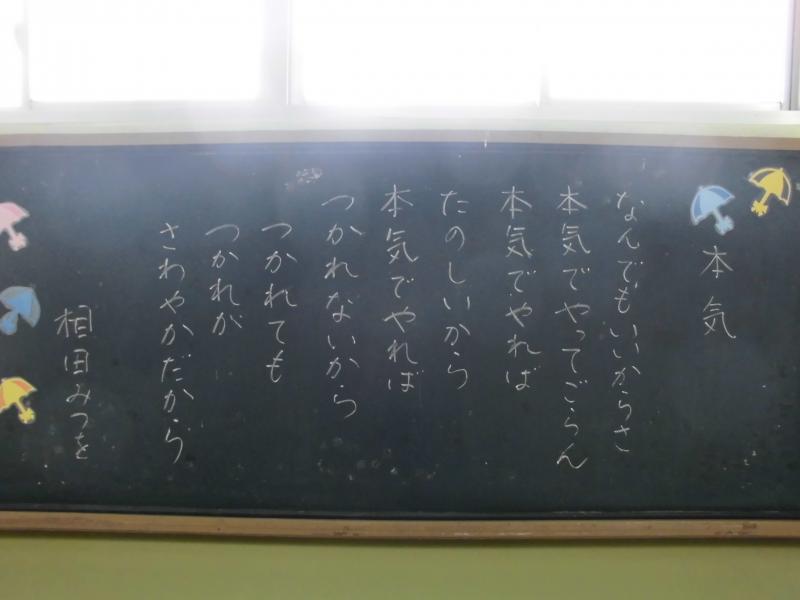 本気
なんでもいいからさ
本気でやってごらん
本気でやれば
たのしいから
本気でやれば
つかれないから
つかれても
つかれが
さわやかだから
相田みつを